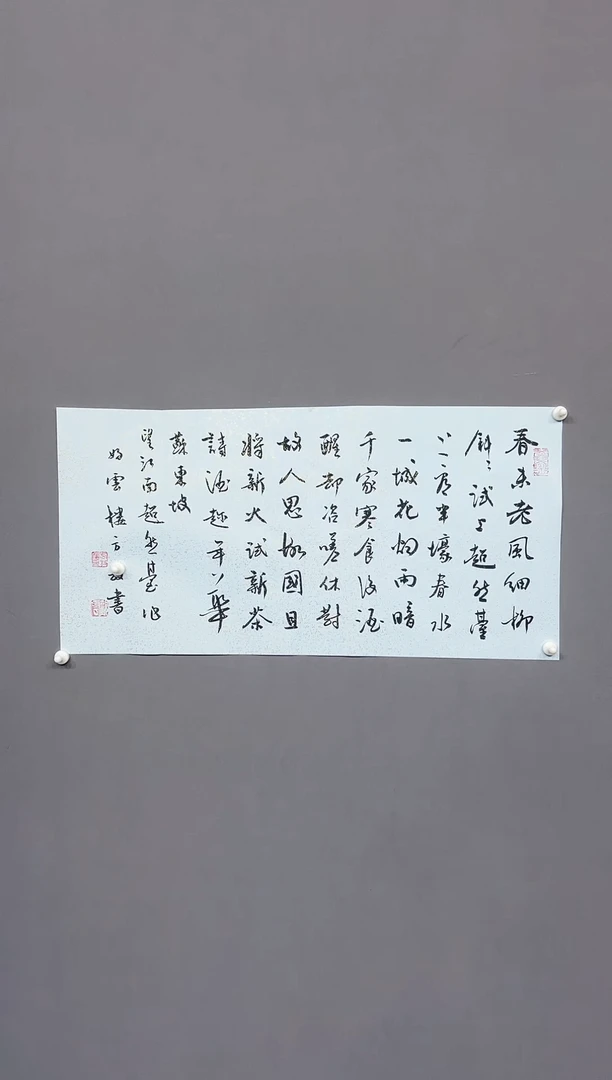 春未老風細柳
斜〻試上超然臺
上看半壕春水
一城花烟雨暗
千家寒食後酒
醒却咨嗟休對
故人思故國且
將新火試新茶
詩酒趁年華
蘇東坡
望江南超然臺作
雲樓方書